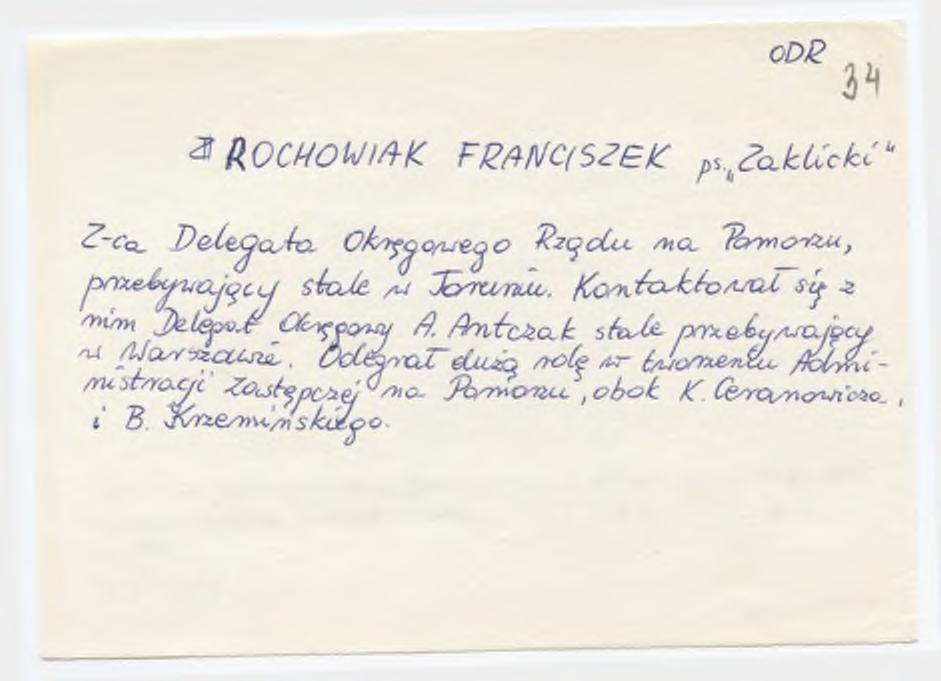 ODR
34
ROCHOWIAK FRANCISZEK ps. „Zaklicki"
Z-ca Delegata Okręgowego Rządu na Pomorzu,
przebywający stale w Toruniu. Kontaktował się z
nim Delegat Okręgowy A. Antczak stale przebywający
w Warszawie. Odegrał dużą rolę w tworzeniu Admi-
nistracji Zastępczej na Pomorzu, obok K. Ceranowicza,
i B. Krzemińskiego.